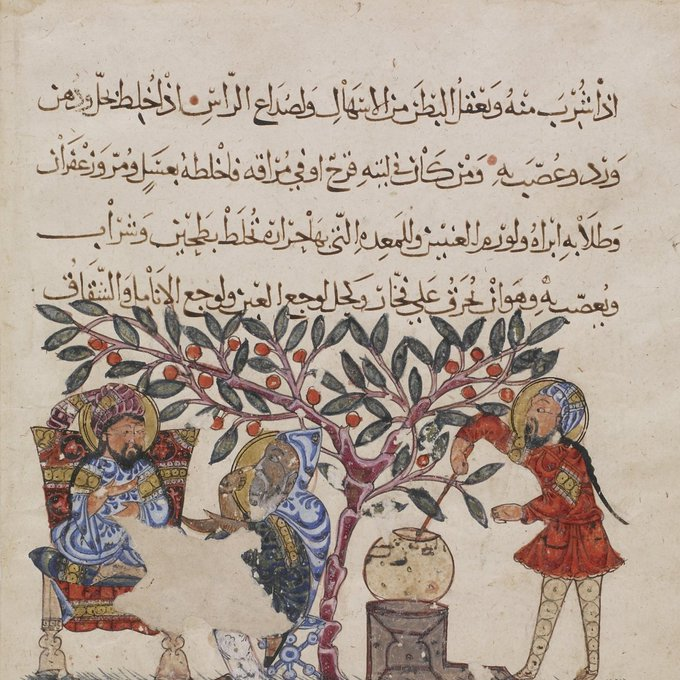 اذا شرب منه ويعقل البطن من الاسهال ولصداع الراس اذا خلط بخل ودهن
ورد وعصب به ومن كان في لثته قرح او في مراقه فاخلطه بعسل ومر وزعفران
وطلا به ابراه ولورم العينين وللمعده التي بها حرارة تخلط بطحين وشراب
ويعصب به وهو ان يحرق على فخار وكحل لوجع العين ولوجع الانامل والشقاق